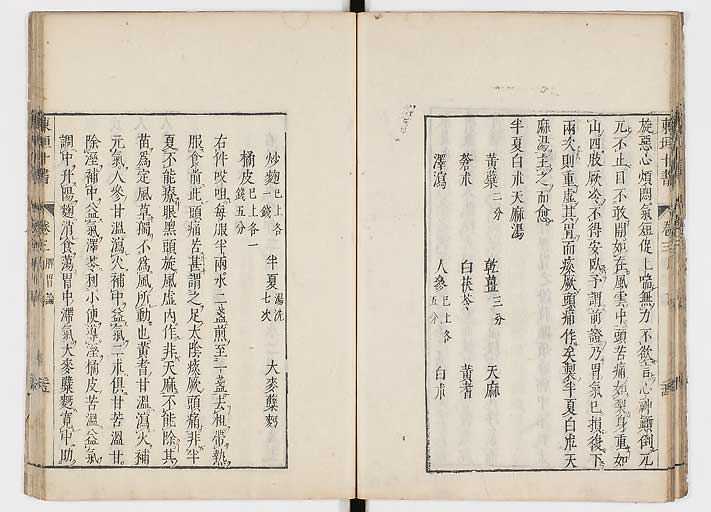 旋惡心煩悶氣短促上喘無力不欲言心神顚倒兀
兀不止目不敢開如在風雲中頭苦痛如裂身重如
山四肢厥冷不得安臥予謂前證乃胃氣已損復下
兩次則重虛其胃而痰厥頭痛作矣製半夏白朮天
麻湯主之而愈
半夏白朮天麻湯
黃蘗二分 乾薑三分 天麻
蒼朮 白茯苓 黃耆
澤瀉 人參已上各五分 白朮
炒麴已上各一錢 半夏湯洗七次 大麥糵麪
橘皮已上各一錢五分
右件㕮咀每服半兩水二盞煎至一盞去柤帶熱
服食前此頭痛苦甚謂之足太陰痰厥頭痛非半
夏不能療眼黑頭旋風虛內作非天麻不能除其
苗爲定風草獨不爲風所動也黃耆甘溫瀉火補
元氣人參甘溫瀉火補中益氣二朮俱甘苦溫甘
除溼補中益氣澤茯利小便導溼橘皮苦溫益氣
調中升陽麴消食蕩胃中滯氣大麥糵麪寬中助
東垣十書 卷三 脾胃論